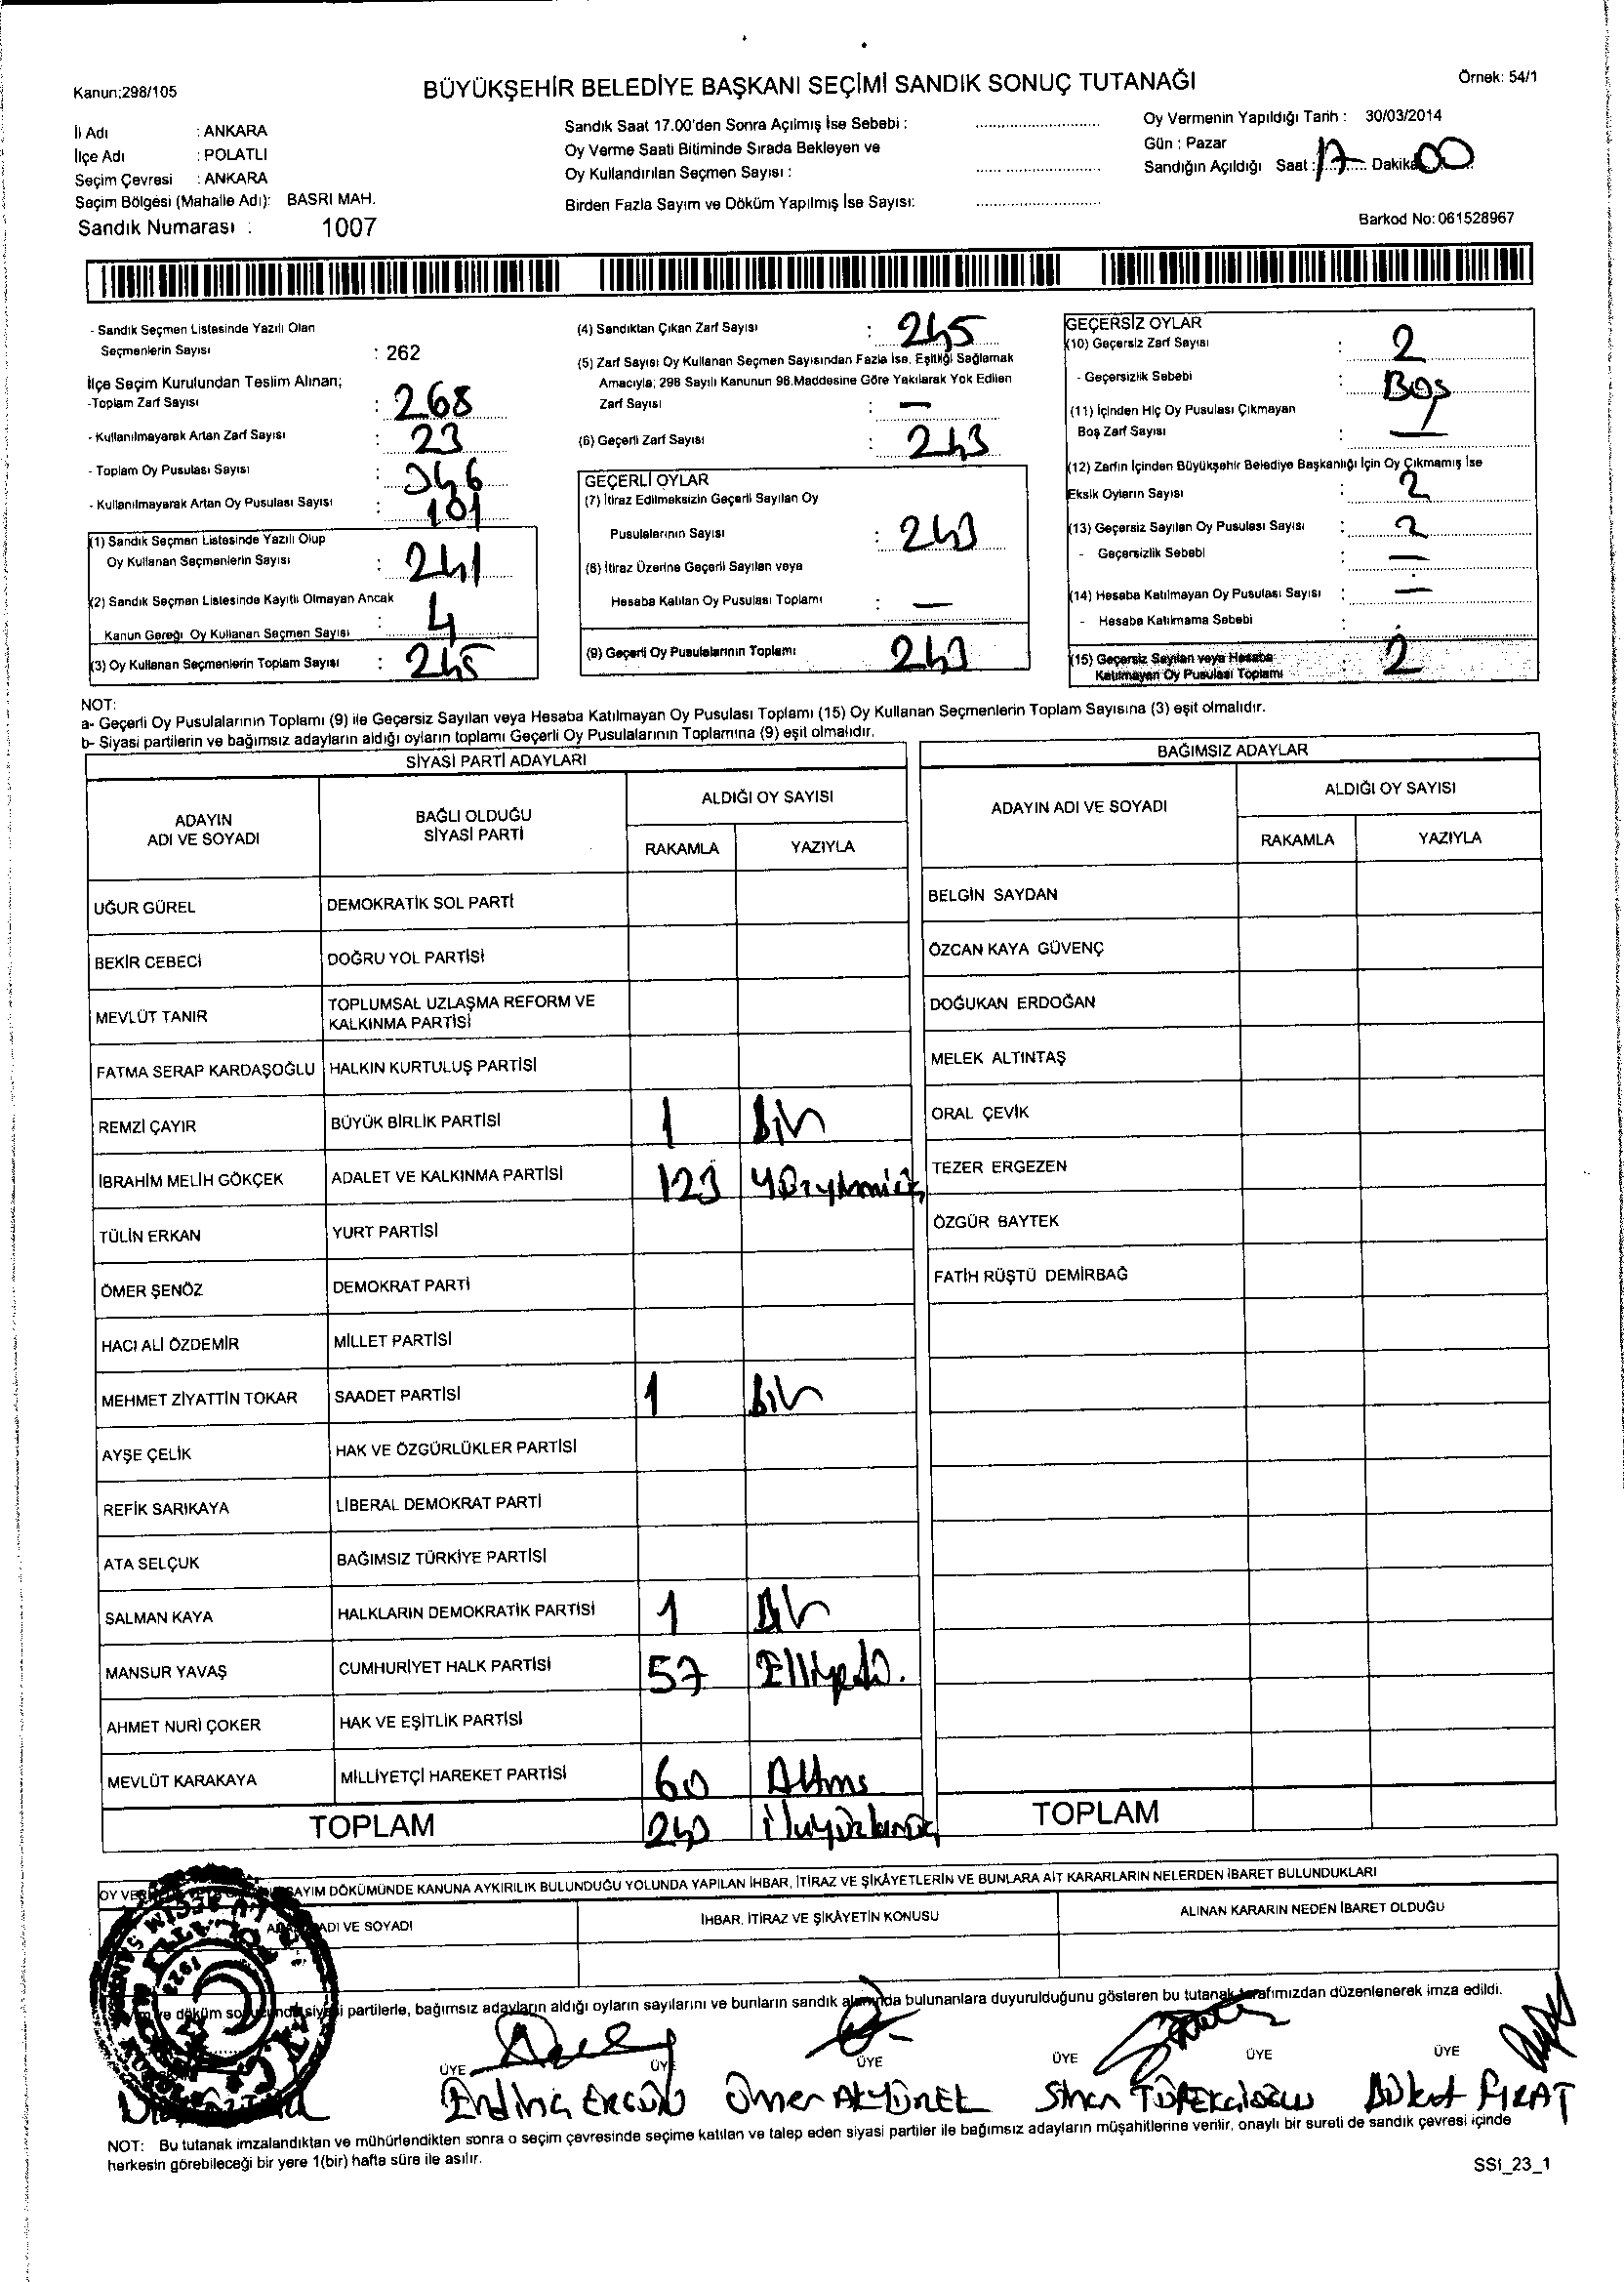 Kanun:298/105
BÜYÜKŞEHİR BELEDİYE BAŞKANI SEÇİMİ SANDIK SONUÇ TUTANAĞI
Örnek: 54/1
İli Adı : ANKARA
İlçe Adı : POLATLI
Seçim Çevresi : ANKARA
Seçim Bölgesi (Mahalle Adı): BASRI MAH.
Sandık Numarası : 1007
Sandık Saat 17.00'den Sonra Açılmış İse Sebebi :
Oy Verme Saati Bitiminde Sırada Bekleyen ve
Oy Kullandırılan Seçmen Sayısı :
Birden Fazla Sayım ve Döküm Yapılmış İse Sayısı:
Oy Vermenin Yapıldığı Tarih : 30/03/2014
Gün : Pazar
Sandığın Açıldığı Saat : 17 Dakika 00
Barkod No: 061528967
- Sandık Seçmen Listesinde Yazılı Olan
Seçmenlerin Sayısı : 262
İlçe Seçim Kurulundan Teslim Alınan;
-Toplam Zarf Sayısı : 268
- Kullanılmayarak Artan Zarf Sayısı : 23
- Toplam Oy Pusulası Sayısı : 346
- Kullanılmayarak Artan Oy Pusulası Sayısı : 101
(1) Sandık Seçmen Listesinde Yazılı Olup
Oy Kullanan Seçmenlerin Sayısı : 241
(2) Sandık Seçmen Listesinde Kayıtlı Olmayan Ancak
Kanun Gereği Oy Kullanan Seçmen Sayısı : 4
(3) Oy Kullanan Seçmenlerin Toplam Sayısı : 245
(4) Sandıktan Çıkan Zarf Sayısı : 245
(5) Zarf Sayısı Oy Kullanan Seçmen Sayısından Fazla İse, Eşitliği Sağlamak
Amacıyla; 298 Sayılı Kanunun 98.Maddesine Göre Yakılarak Yok Edilen
Zarf Sayısı : —
(6) Geçerli Zarf Sayısı : 243
GEÇERLİ OYLAR
(7) İtiraz Edilmeksizin Geçerli Sayılan Oy
Pusulalarının Sayısı : 243
(8) İtiraz Üzerine Geçerli Sayılan veya
Hesaba Katılan Oy Pusulası Toplamı : —
(9) Geçerli Oy Pusulalarının Toplamı 243
GEÇERSİZ OYLAR
(10) Geçersiz Zarf Sayısı : 2
- Geçersizlik Sebebi : Boş
(11) İçinden Hiç Oy Pusulası Çıkmayan
Boş Zarf Sayısı : —
(12) Zarfın İçinden Büyükşehir Belediye Başkanlığı İçin Oy Çıkmamış İse
Eksik Oyların Sayısı : 2
(13) Geçersiz Sayılan Oy Pusulası Sayısı : 2
- Geçersizlik Sebebi : —
(14) Hesaba Katılmayan Oy Pusulası Sayısı : —
- Hesaba Katılmama Sebebi :
(15) Geçersiz Sayılan veya Hesaba
Katılmayan Oy Pusulası Toplamı : 2
NOT:
a- Geçerli Oy Pusulalarının Toplamı (9) ile Geçersiz Sayılan veya Hesaba Katılmayan Oy Pusulası Toplamı (15) Oy Kullanan Seçmenlerin Toplam Sayısına (3) eşit olmalıdır.
b- Siyasi partilerin ve bağımsız adayların aldığı oyların toplamı Geçerli Oy Pusulalarının Toplamına (9) eşit olmalıdır.
SİYASİ PARTİ ADAYLARI
ADAYIN
ADI VE SOYADI
BAĞLI OLDUĞU
SİYASİ PARTİ
ALDIĞI OY SAYISI
RAKAMLA YAZIYLA
UĞUR GÜREL DEMOKRATİK SOL PARTİ
BEKİR CEBECİ DOĞRU YOL PARTİSİ
MEVLÜT TANIR TOPLUMSAL UZLAŞMA REFORM VE
KALKINMA PARTİSİ
FATMA SERAP KARDAŞOĞLU HALKIN KURTULUŞ PARTİSİ
REMZİ ÇAYIR BÜYÜK BİRLİK PARTİSİ 1 Bir
İBRAHİM MELİH GÖKÇEK ADALET VE KALKINMA PARTİSİ 123 Yüzyirmiüç
TÜLİN ERKAN YURT PARTİSİ
ÖMER ŞENÖZ DEMOKRAT PARTİ
HACI ALİ ÖZDEMİR MİLLET PARTİSİ
MEHMET ZİYATTİN TOKAR SAADET PARTİSİ 1 Bir
AYŞE ÇELİK HAK VE ÖZGÜRLÜKLER PARTİSİ
REFİK SARIKAYA LİBERAL DEMOKRAT PARTİ
ATA SELÇUK BAĞIMSIZ TÜRKİYE PARTİSİ
SALMAN KAYA HALKLARIN DEMOKRATİK PARTİSİ 1 Bir
MANSUR YAVAŞ CUMHURİYET HALK PARTİSİ 57 Elliyedi.
AHMET NURİ ÇOKER HAK VE EŞİTLİK PARTİSİ
MEVLÜT KARAKAYA MİLLİYETÇİ HAREKET PARTİSİ 60 Altmış
TOPLAM 243 İkiyüzkırküç
BAĞIMSIZ ADAYLAR
ADAYIN ADI VE SOYADI
ALDIĞI OY SAYISI
RAKAMLA YAZIYLA
BELGİN SAYDAN
ÖZCAN KAYA GÜVENÇ
DOĞUKAN ERDOĞAN
MELEK ALTINTAŞ
ORAL ÇEVİK
TEZER ERGEZEN
ÖZGÜR BAYTEK
FATİH RÜŞTÜ DEMİRBAĞ
TOPLAM
SAYIM DÖKÜMÜNDE KANUNA AYKIRILIK BULUNDUĞU YOLUNDA YAPILAN İHBAR, İTİRAZ VE ŞİKÂYETLERİN VE BUNLARA AİT KARARLARIN NELERDEN İBARET BULUNDUKLARI
ADI VE SOYADI
İHBAR, İTİRAZ VE ŞİKÂYETİN KONUSU
ALINAN KARARIN NEDEN İBARET OLDUĞU
ve döküm siyasi partilerle, bağımsız adayların aldığı oyların sayılarını ve bunların sandık alanında bulunanlara duyurulduğunu gösteren bu tutanak tarafımızdan düzenlenerek imza edildi.
ÜYE ÜYE ÜYE ÜYE ÜYE ÜYE
ERGÜN Ömer AKYÜREK Sinan TÜFEKÇİOĞLU Bülent FIRAT
NOT: Bu tutanak imzalandıktan ve mühürlendikten sonra o seçim çevresinde seçime katılan ve talep eden siyasi partiler ile bağımsız adayların müşahitlerine verilir, onaylı bir sureti de sandık çevresi içinde
herkesin görebileceği bir yere 1(bir) hafta süre ile asılır.
SSI_23_1